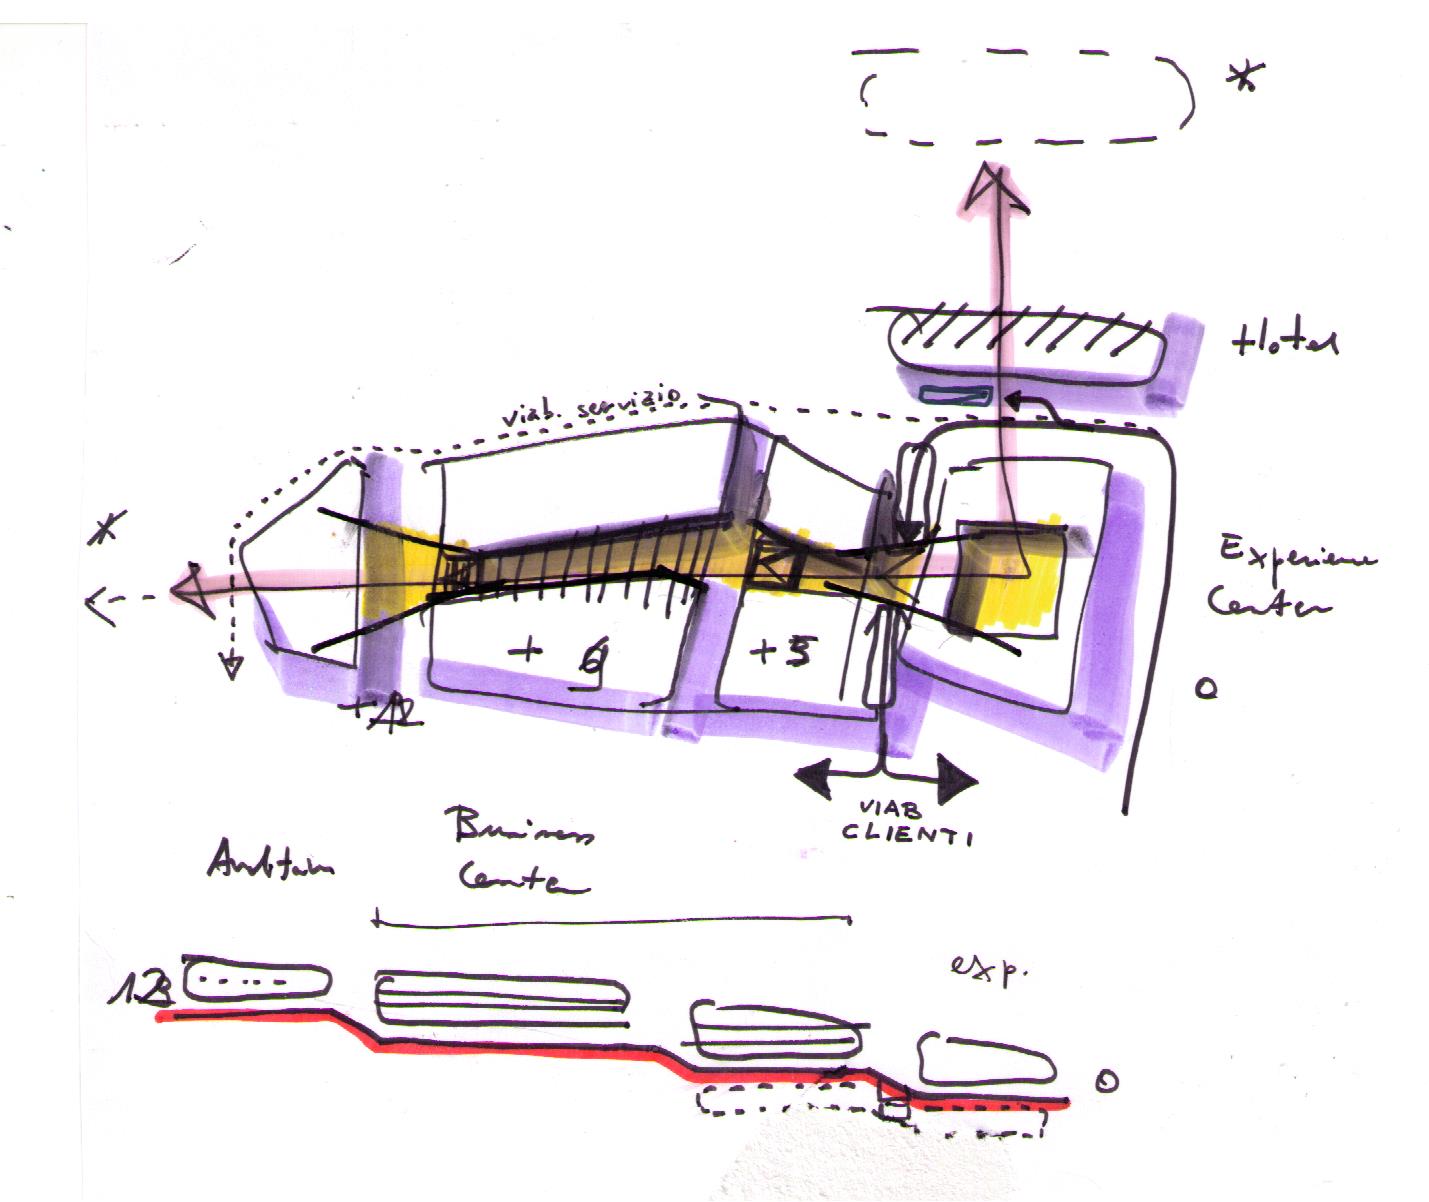 *
Hotel
viab. servizio
*
Experience
Center
+ 6
+ 5
0
+ 12
VIAB
CLIENTI
Business
Center
Auditorium
exp.
12
0